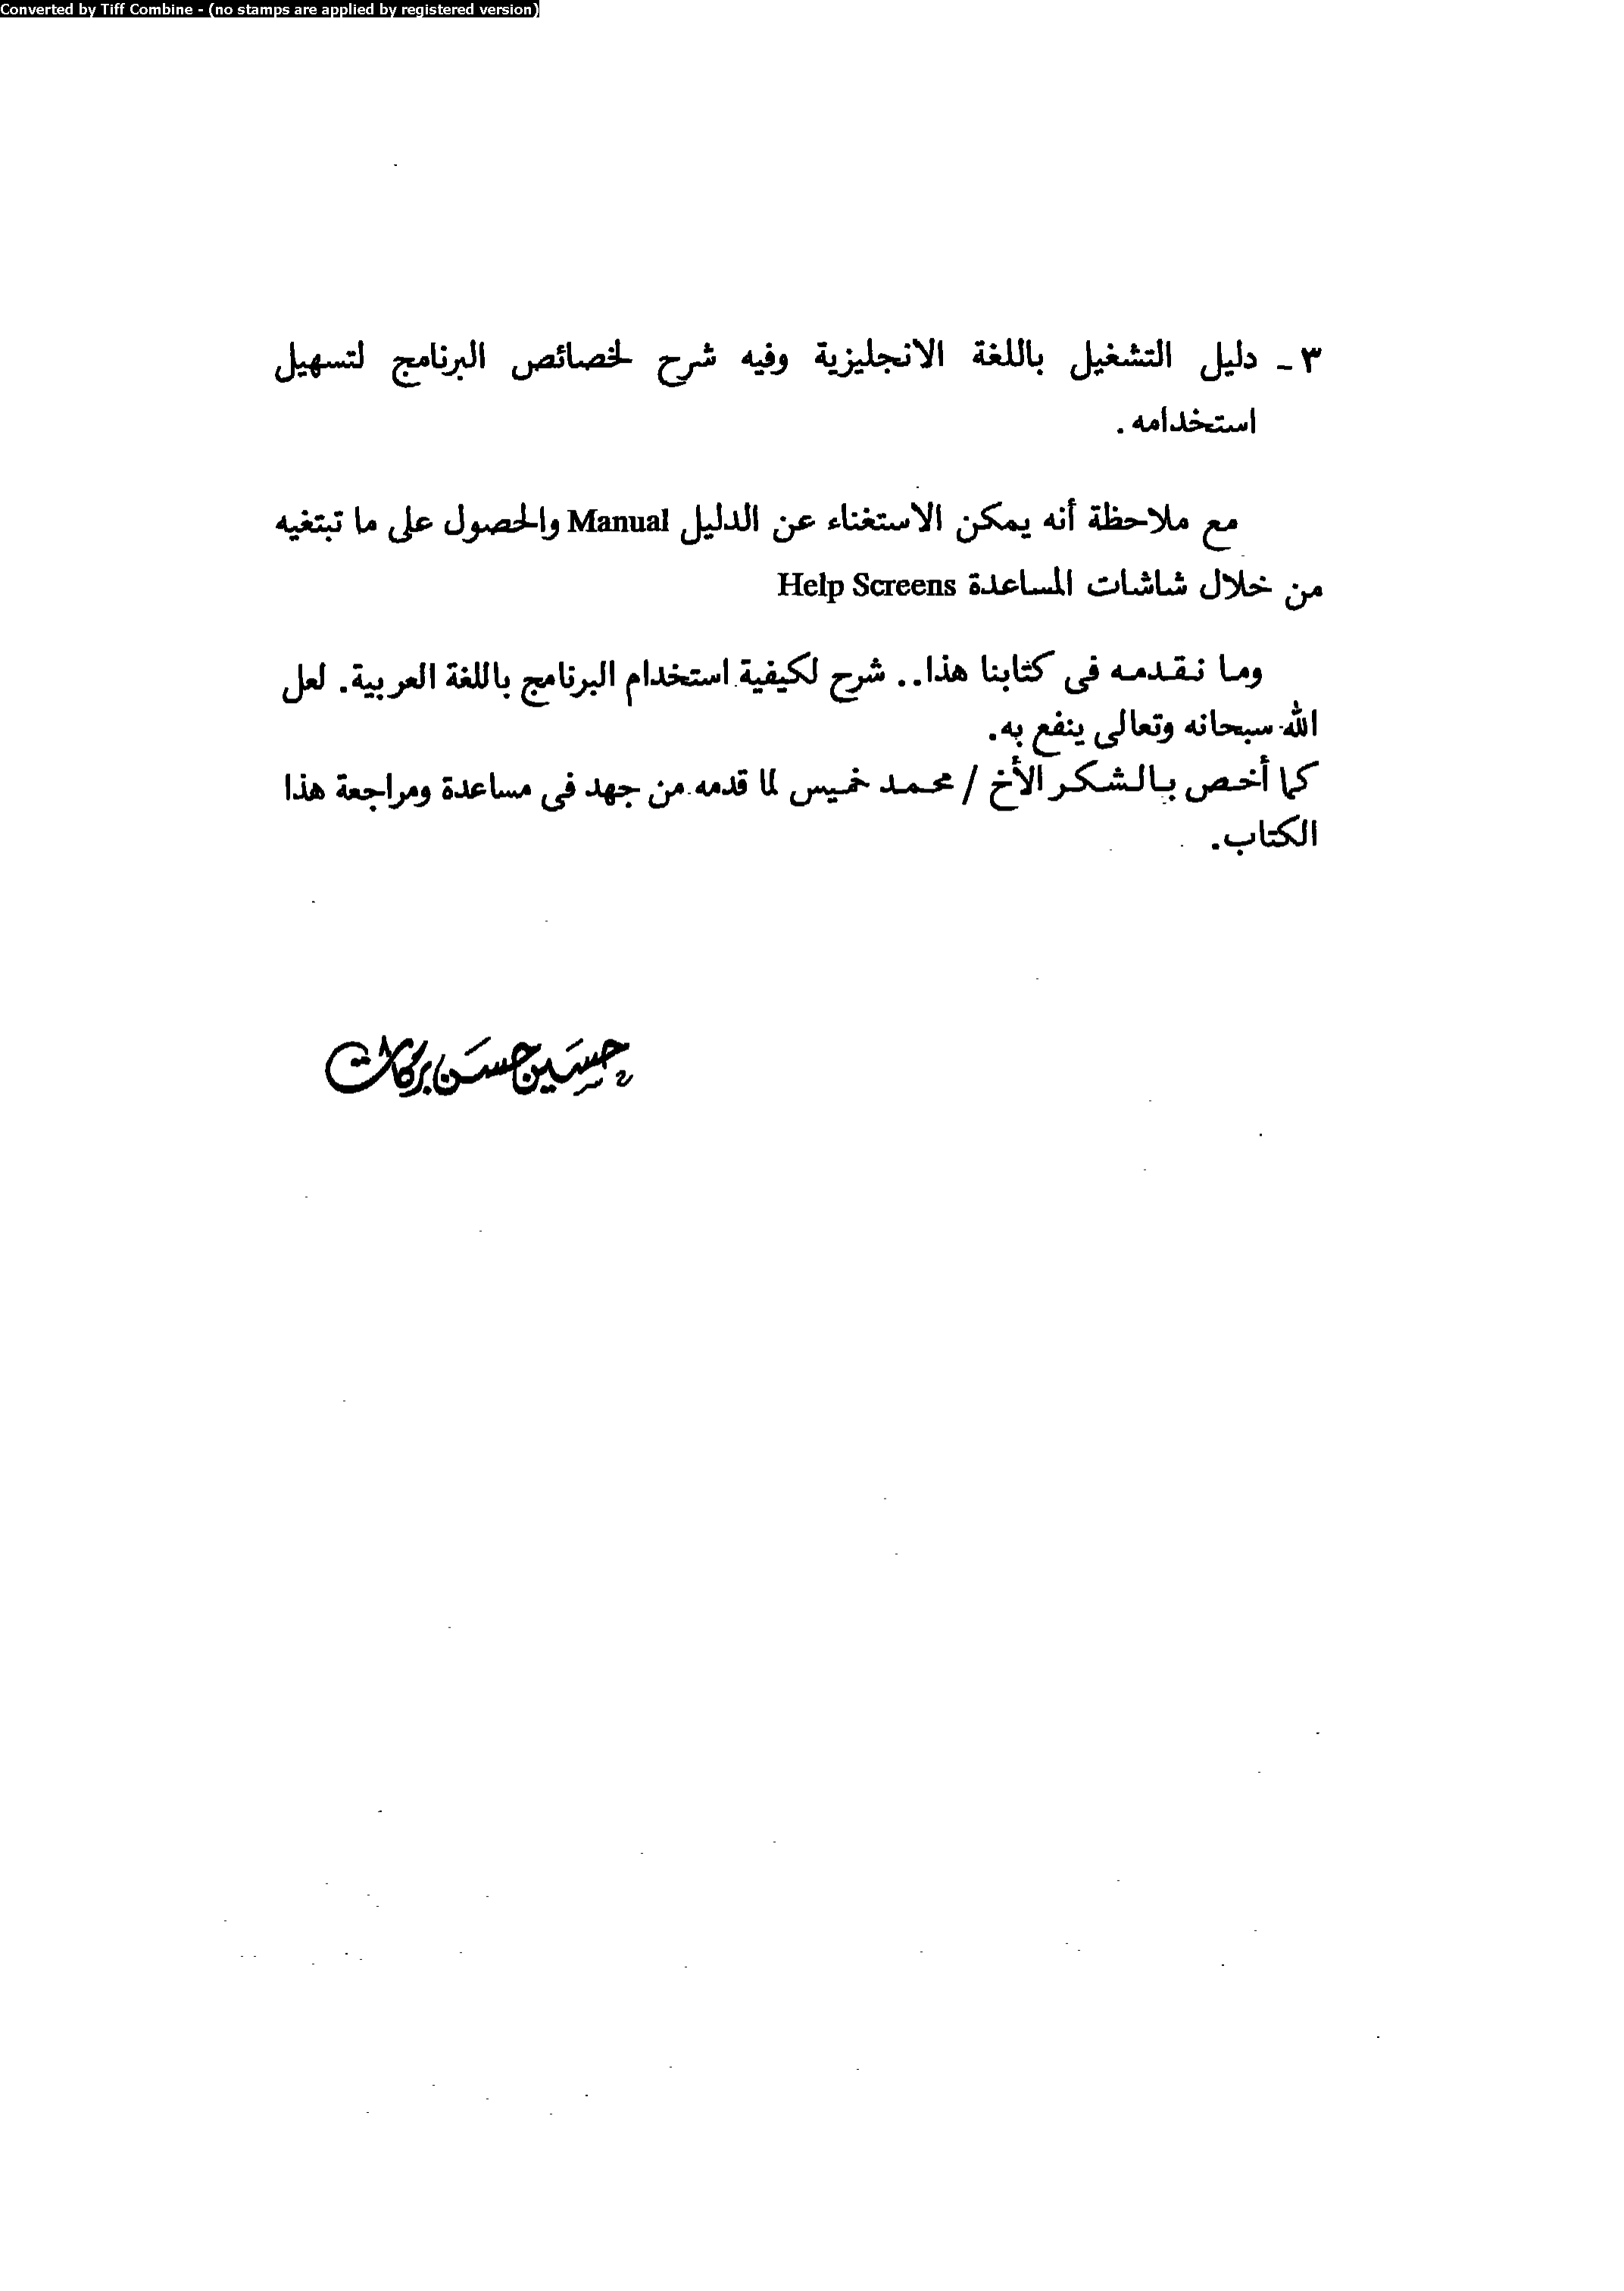 Converted by Tiff Combine - (no stamps are applied by registered version)
٣ - دليل التشغيل باللغة الانجليزية وفيه شرح لخصائص البرنامج لتسهيل
استخدامه .
مع ملاحظة أنه يمكن الاستغناء عن الدليل Manual والحصول على ما تبتغيه
من خلال شاشات المساعدة Help Screens
وما نقدمه فى كتابنا هذا .. شرح لكيفية استخدام البرنامج باللغة العربية. لعل
الله سبحانه وتعالى ينفع به.
كما أخص بالشكر الأخ / محمد خميس لما قدمه من جهد فى مساعدة ومراجعة هذا
الكتاب.
حسين حسن بركات